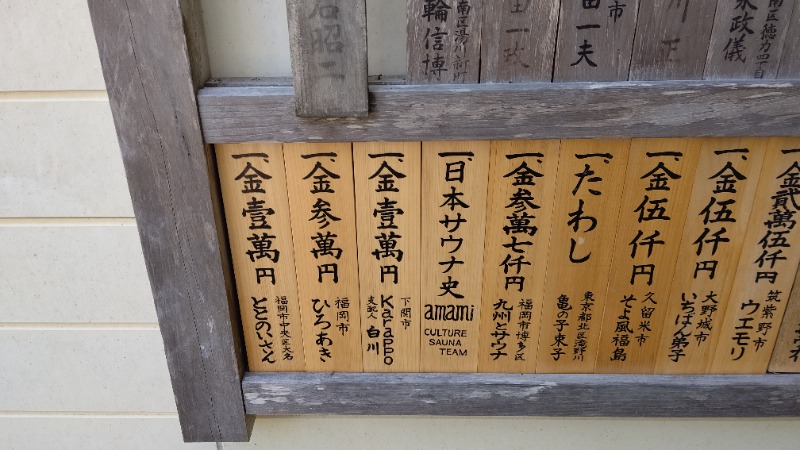 南区徳力四丁目
政儀
川正
市
田一夫
田一政
南区湯川新町
輪信博
石昭二
一、金貳萬伍仟円
筑紫野市
ウエモリ
一、金伍仟円
大野城市
いちばん弟子
一、金伍仟円
久留米市
そよ風福島
一、たわし
東京都北区滝野川
亀の子束子
一、金参萬七仟円
福岡市博多区
九州とサウナ
一、日本サウナ史
amami
CULTURE
SAUNA
TEAM
一、金壹萬円
下関市
Karappo
支配人 白川
一、金参萬円
福岡市
ひろあき
一、金壹萬円
福岡市中央区大名
ととのいさん